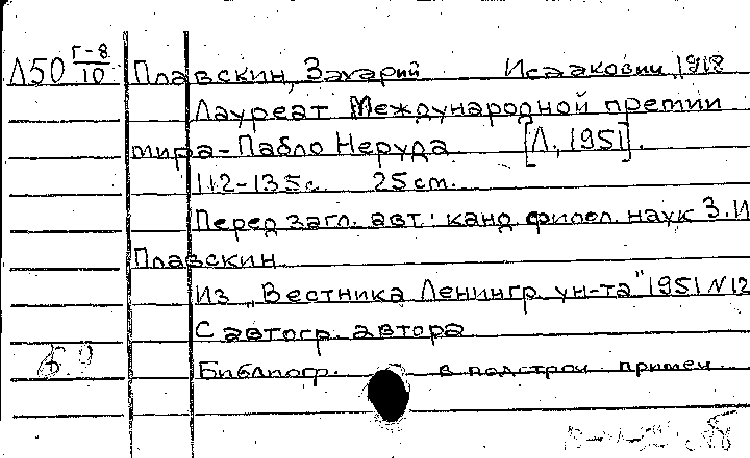 Л50 Г-8/10 Плавскин, Захарий Исаакович, 1918
Лауреат Международной премии
мира - Пабло Неруда [Л, 1951].
112-135 с. 25 cm.
Перед загл. авт: канд. филол. наук З. И
Плавскин
Из „Вестника Ленингр. ун-та" 1951 N 12
С автогр. автора
Библиогр. в подстроч примеч